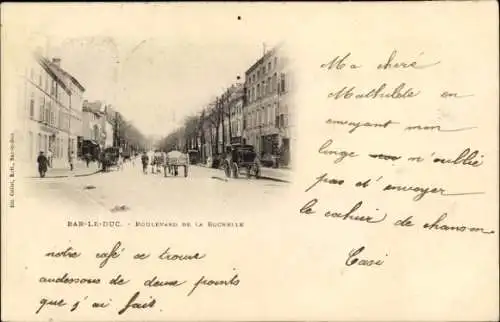 Ma chère
Mathilde en
envoyant mon
linge n'oublie
pas d'envoyer
le cahier de chansons
Casi
BAR-LE-DUC. - BOULEVARD DE LA ROCHELLE
notre café se trouve
audessous de deux points
que j'ai fait.